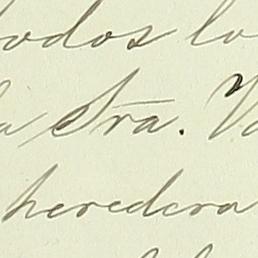 todos lo
la Sra. V
heredera